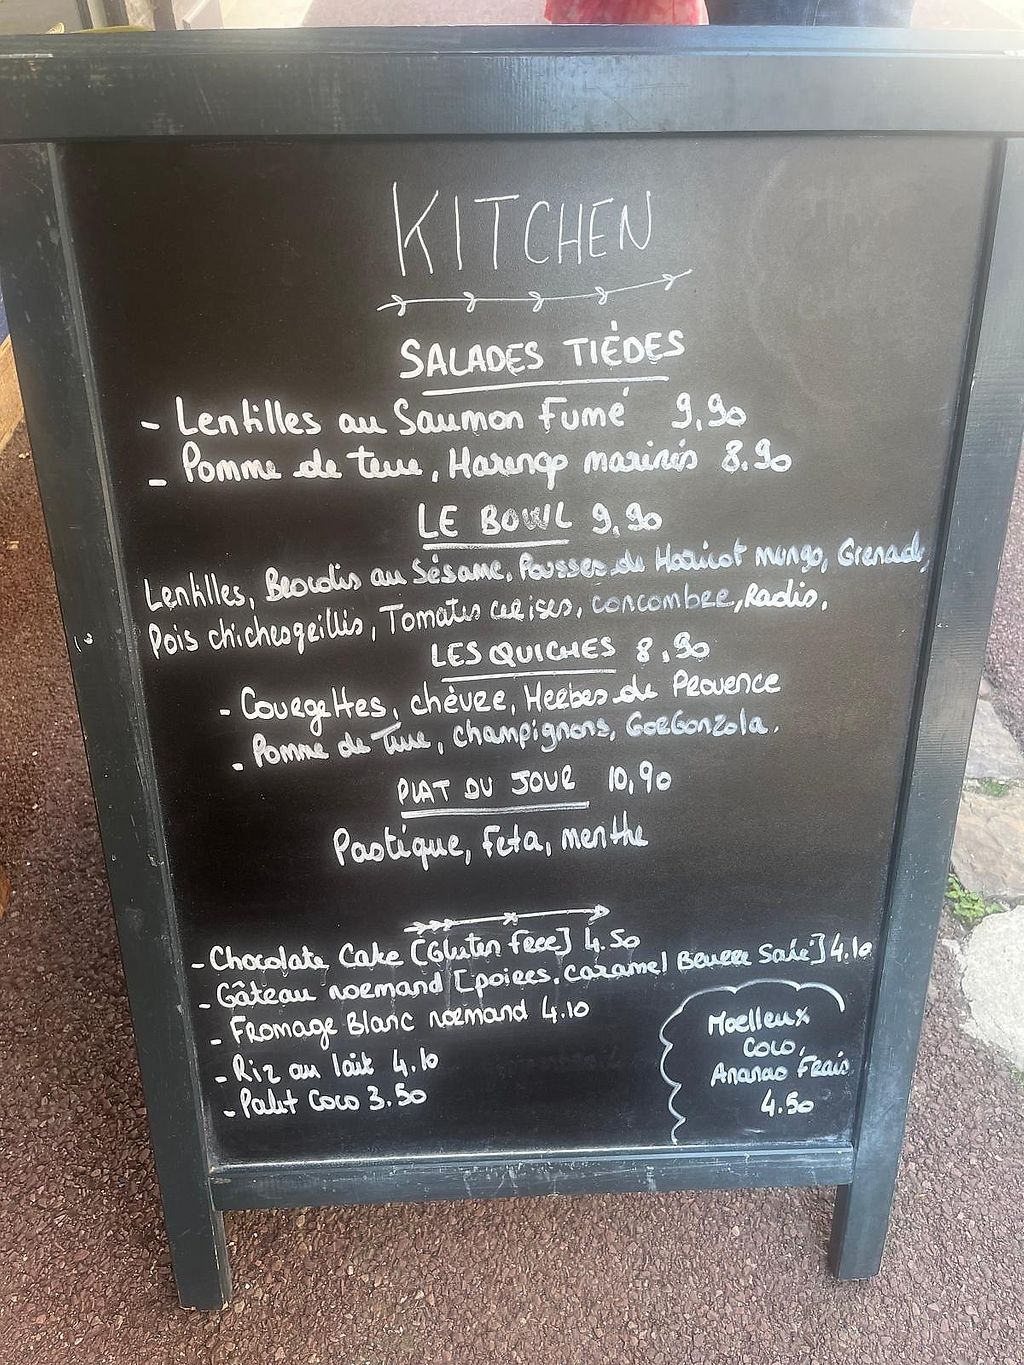 KITCHEN
SALADES TIÈDES
- Lentilles au Saumon Fumé 9,90
- Pomme de terre, Hareng marinés 8.90
LE BOWL 9,90
Lentilles, Brocolis au Sésame, Pousses de Haricot mungo, Grenade,
Pois chiches grillés, Tomates cerises, concombre, Radis.
LES QUICHES 8,90
- Courgettes, chèvre, Herbes de Provence
- Pomme de Terre, champignons, GorGonzola.
PLAT DU JOUR 10,90
Pastèque, Feta, menthe
- Chocolate Cake [Gluten Free] 4.50
- Gâteau normand [poires, caramel Beurre Salé] 4.10
- Fromage Blanc normand 4.10
- Riz au lait 4.10
- Palet Coco 3.50
Moelleux
Coco,
Ananas Frais
4.50